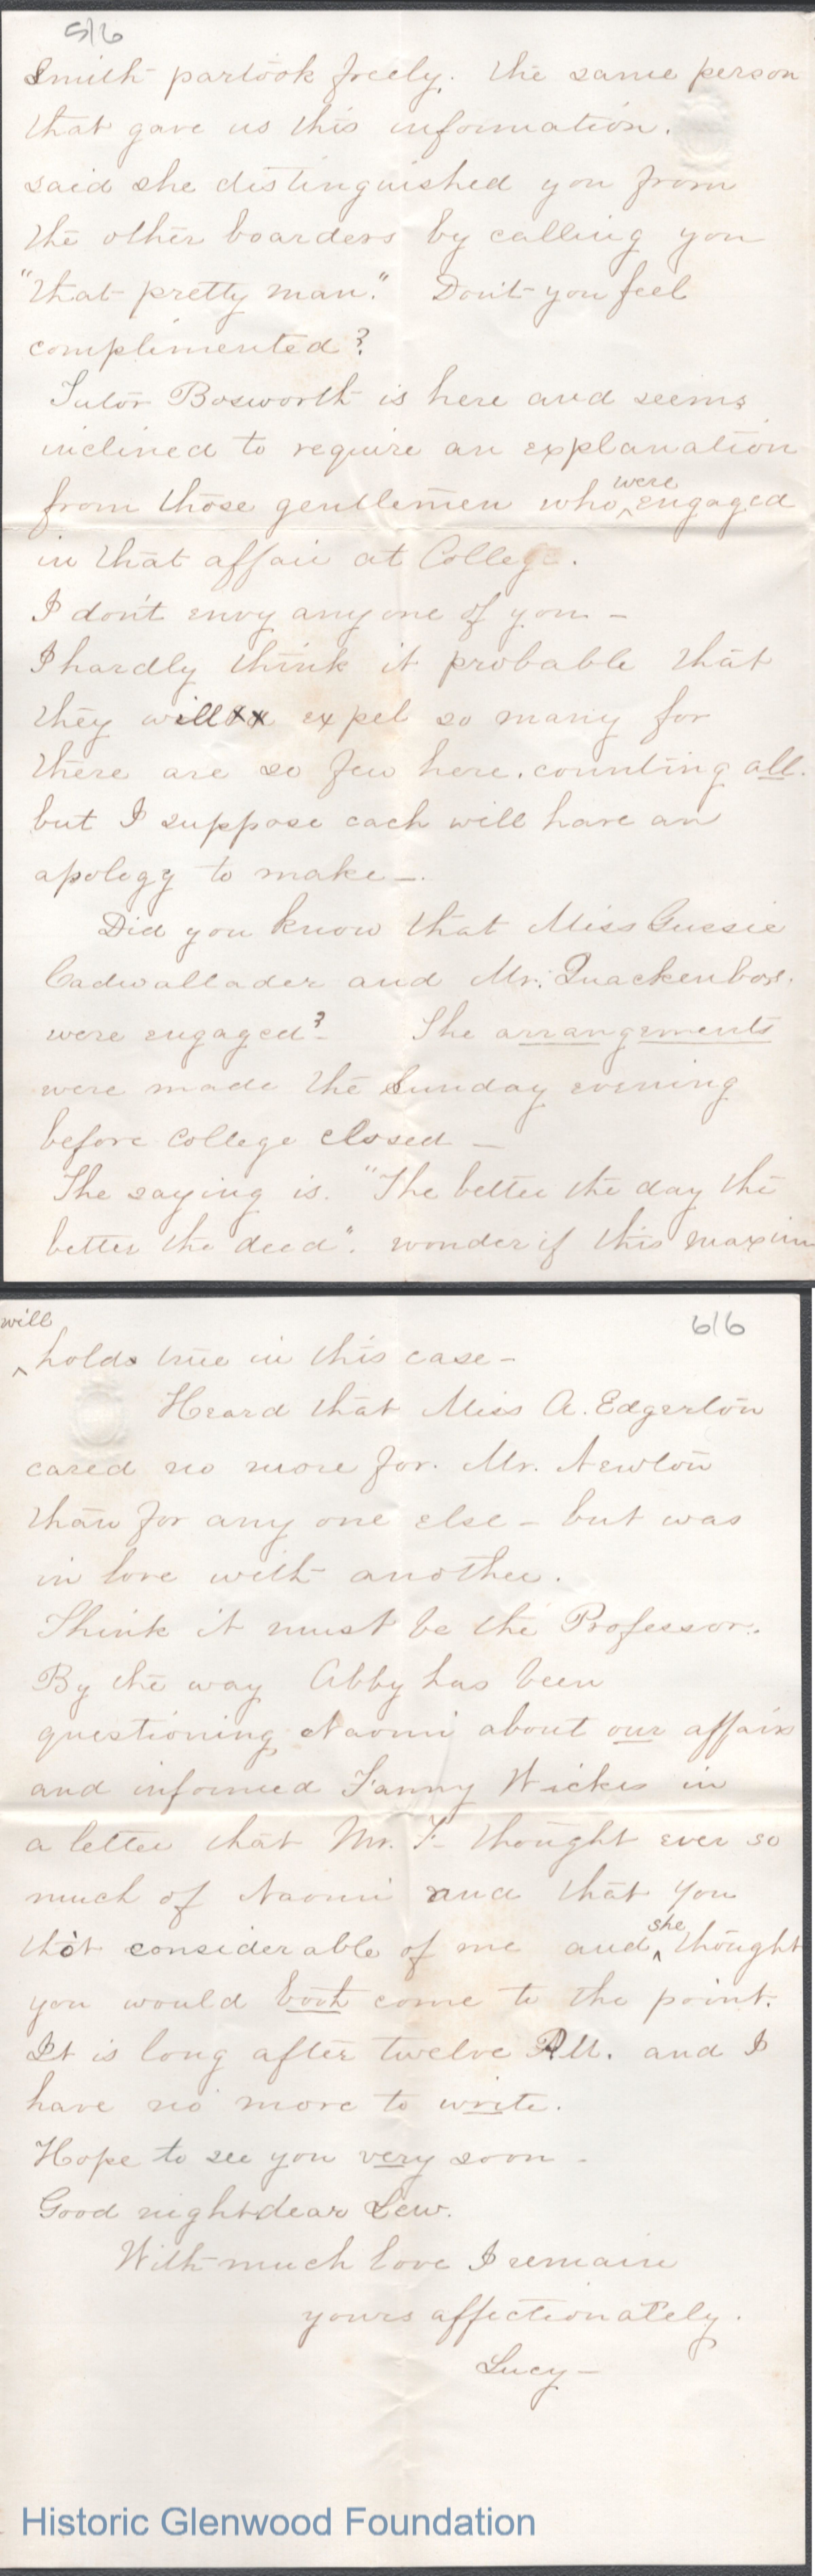 5/6
Smith partook freely. The same person
that gave us this information.
said she distinguished you from
the other boarders by calling you
"that pretty man." Don't you feel
complimented?
Tutor Bosworth is here and seems
inclined to require an explanation
from those gentlemen who ^were engaged
in that affair at College.
I don't envy any one of you –
I hardly think it probable that
they will expel so many for
there are so few here. counting all.
but I suppose each will have an
apology to make –.
Did you know that Miss Gussie
Cadwallader and Mr. Quackenbos.
were engaged? The arrangements
were made the Sunday evening
before College closed –
The saying is. "The better the day the
better the deed". wonder if this maxim
6/6
^will holds true in this case –
Heard that Miss A. Edgerton
cared no more for. Mr. Newton
than for any one else – but was
in love with another.
Think it must be the Professor.
By the way Abby has been
questioning Naomi about our affairs
and informed Fanny Wickes in
a letter that Mr. F– thought ever so
much of Naomi and that you
thot considerable of me and ^she thought
you would both come to the point.
It is long after twelve P.M. and I
have no more to write.
Hope to see you very soon –
Good night dear Lew.
With much love I remain
yours affectionately.
Lucy –
Historic Glenwood Foundation